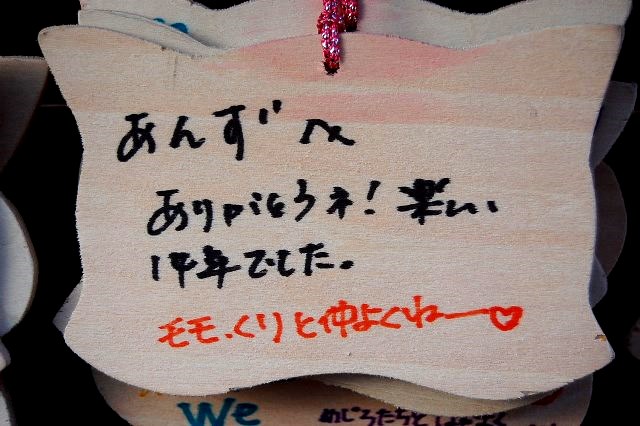 あんずへ
ありがとうネ!楽しい
14年でした。
モモ、くりと仲よくねー♡
We
めじろたちと